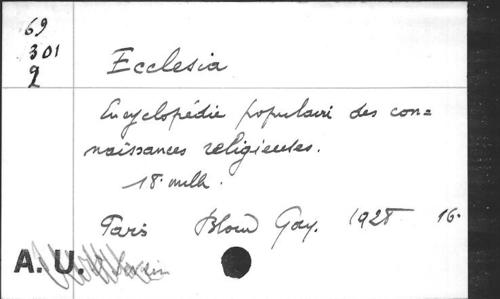 69
301
2
Ecclesia
Encyclopédie populaire des con=
naissances religieuses.
18. mille.
Paris Bloud Gay. 1928 16.
A. U.